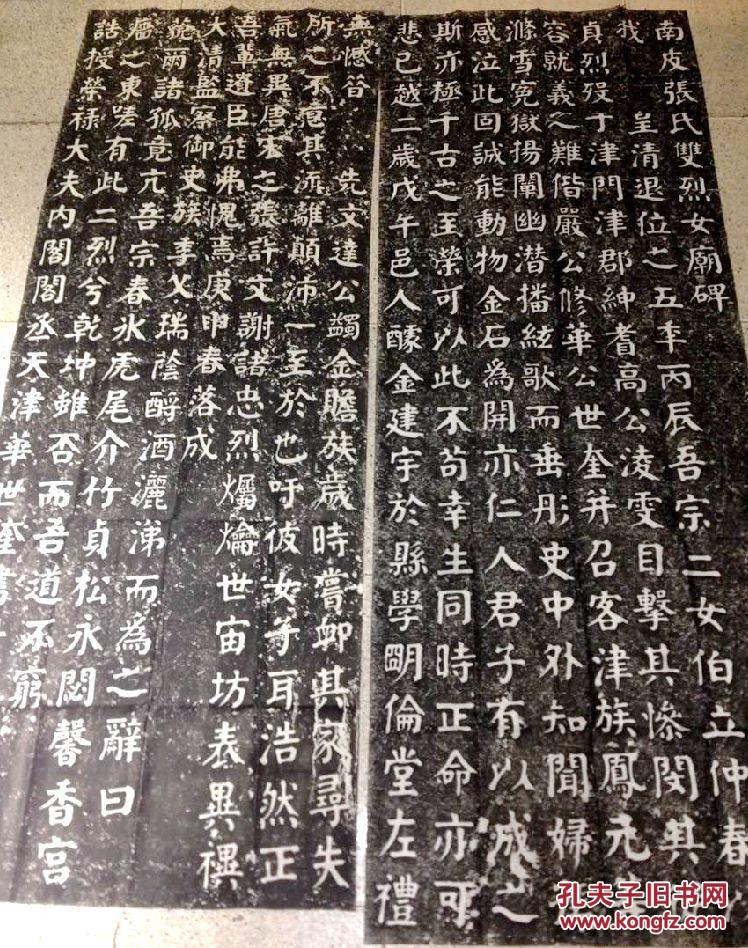 南皮張氏雙烈女廟碑
我　皇清退位之五年丙辰吾宗二女伯立仲春
貞烈歿于津門津郡紳耆高公凌雯目擊其慘閔其
容就義之難偕嚴公修華公世奎并召客津族鳳元
滌雪冤獄揚闡幽潛播絃歌而垂彤史中外知聞婦
感泣此固誠能動物金石為開亦仁人君子有以成之
斯亦極千古之至榮可以此不苟幸生同時正命亦可
悲已越二歲戊午邑人醵金建宇於縣學明倫堂左禮
無憾答　先文達公蠲金贍族歲時嘗卹其家尋失
所之不意其流離顛沛一至於也吁彼女子耳浩然正
氣無異唐宋之張許文謝諸忠烈爛爚世宙坊表異禩
吾輩遺臣能弗愧焉庚申春落成
大清監察御史族季父瑞蔭酹酒灑涕而為之辭曰
藐爾諸孤竟亢吾宗春冰虎尾介竹貞松永閟馨香宮
牆之東嗟有此二烈兮乾坤雖否而吾道不窮
誥授榮祿大夫內閣閣丞天津華世奎書
孔夫子旧书网
www.kongfz.com